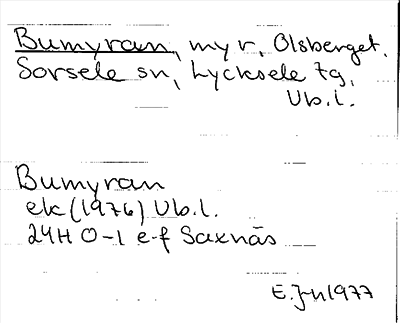 Bumyran, myr, Olsberget,
Sorsele sn, Lycksele tg,
Vb.l.
Bumyran
ek (1976) Vb.l.
24H 0-1 e-f Saxnäs
E. Jn 1977